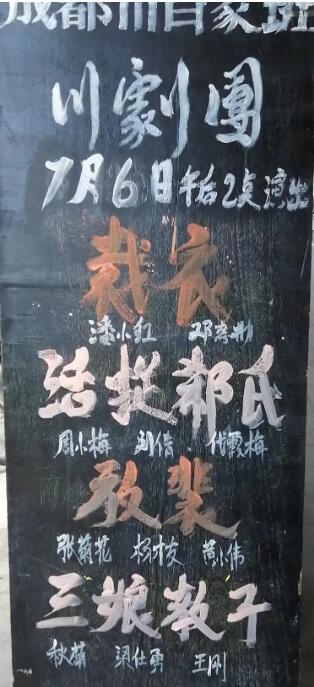 成都川百家班
川劇團
7月6日午后2点演出
裁衣
潘小红 邓彦彬
活捉郝氏
周小梅 刘倩 代霞梅
放裴
张菊花 杨枝 黄小伟
三娘教子
秋菊 梁仕勇 王刚